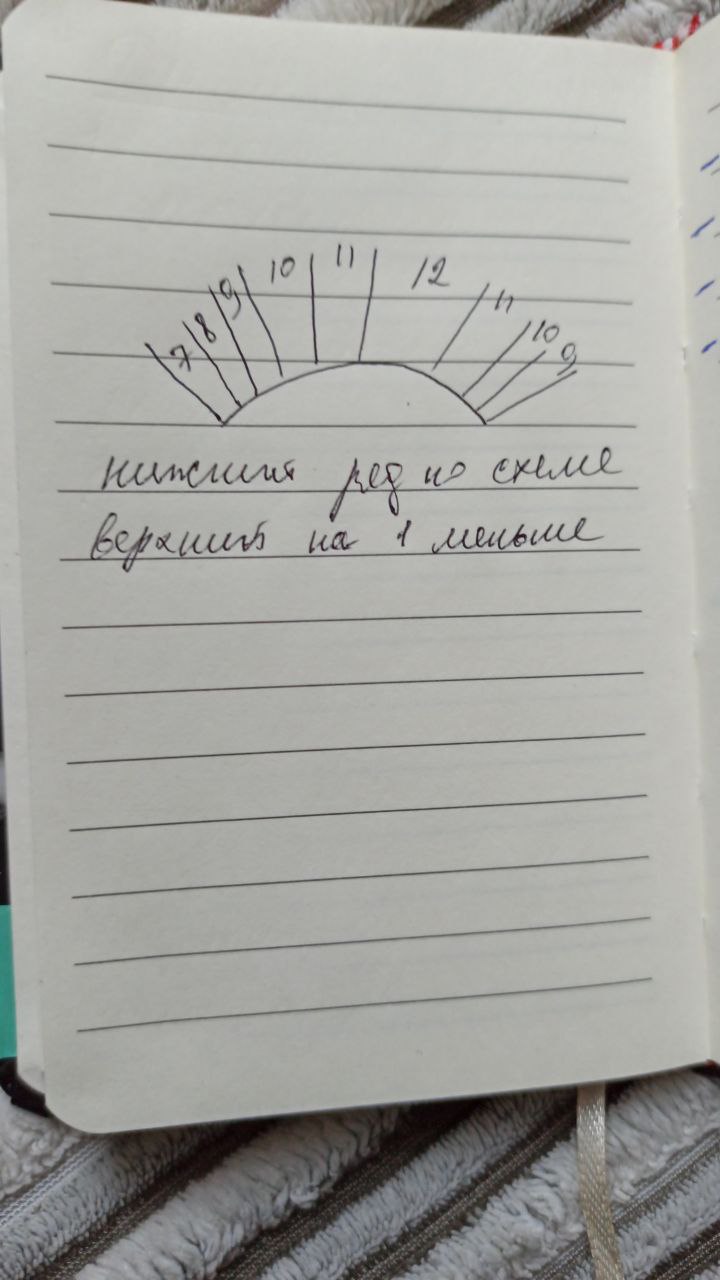 7 8 9 10 11 12 11 10 9
нижний ряд по схеме
верхний на 1 меньше